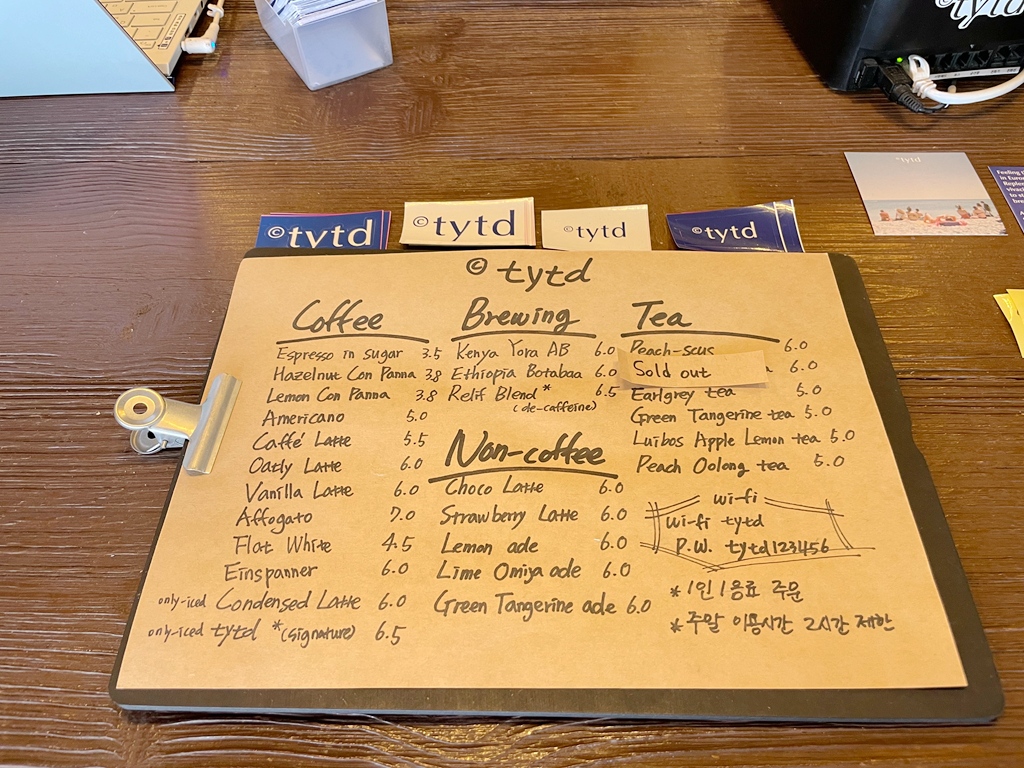 ©tytd
©tytd
©tytd
©tytd
©tytd
©tytd
Feeling
in Euro
© tytd
Coffee
Espresso in sugar 3.5
Hazelnut Con Panna 3.8
Lemon Con Panna 3.8
Americano 5.0
Caffé Latte 5.5
Oatly Latte 6.0
Vanilla Latte 6.0
Affogato 7.0
Flat White 4.5
Einspanner 6.0
only-iced Condensed Latte 6.0
only-iced tytd *(signature) 6.5
Brewing
Kenya Yora AB 6.0
Ethiopia Botabaa 6.0
Relif Blend * 6.5
(de-caffeine)
Non-coffee
Choco Latte 6.0
Strawberry Latte 6.0
Lemon ade 6.0
Lime Omiya ade 6.0
Green Tangerine ade 6.0
Tea
Peach-scus 6.0
Sold out 6.0
Earlgrey tea 5.0
Green Tangerine tea 5.0
Luibos Apple Lemon tea 5.0
Peach Oolong tea 5.0
wi-fi
wi-fi tytd
P.W. tytd123456
*1인 1음료 주문
*주말 이용시간 2시간 제한